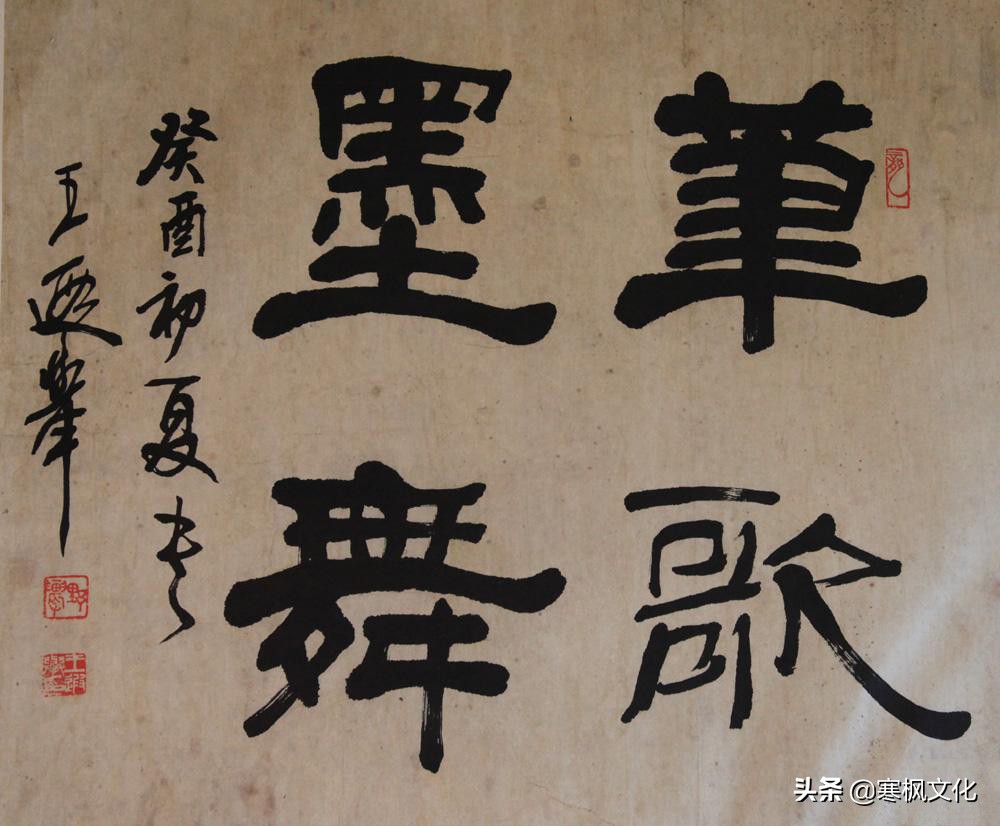 筆歌
墨舞
癸酉初夏书
王遐舉
头条 @寒枫文化